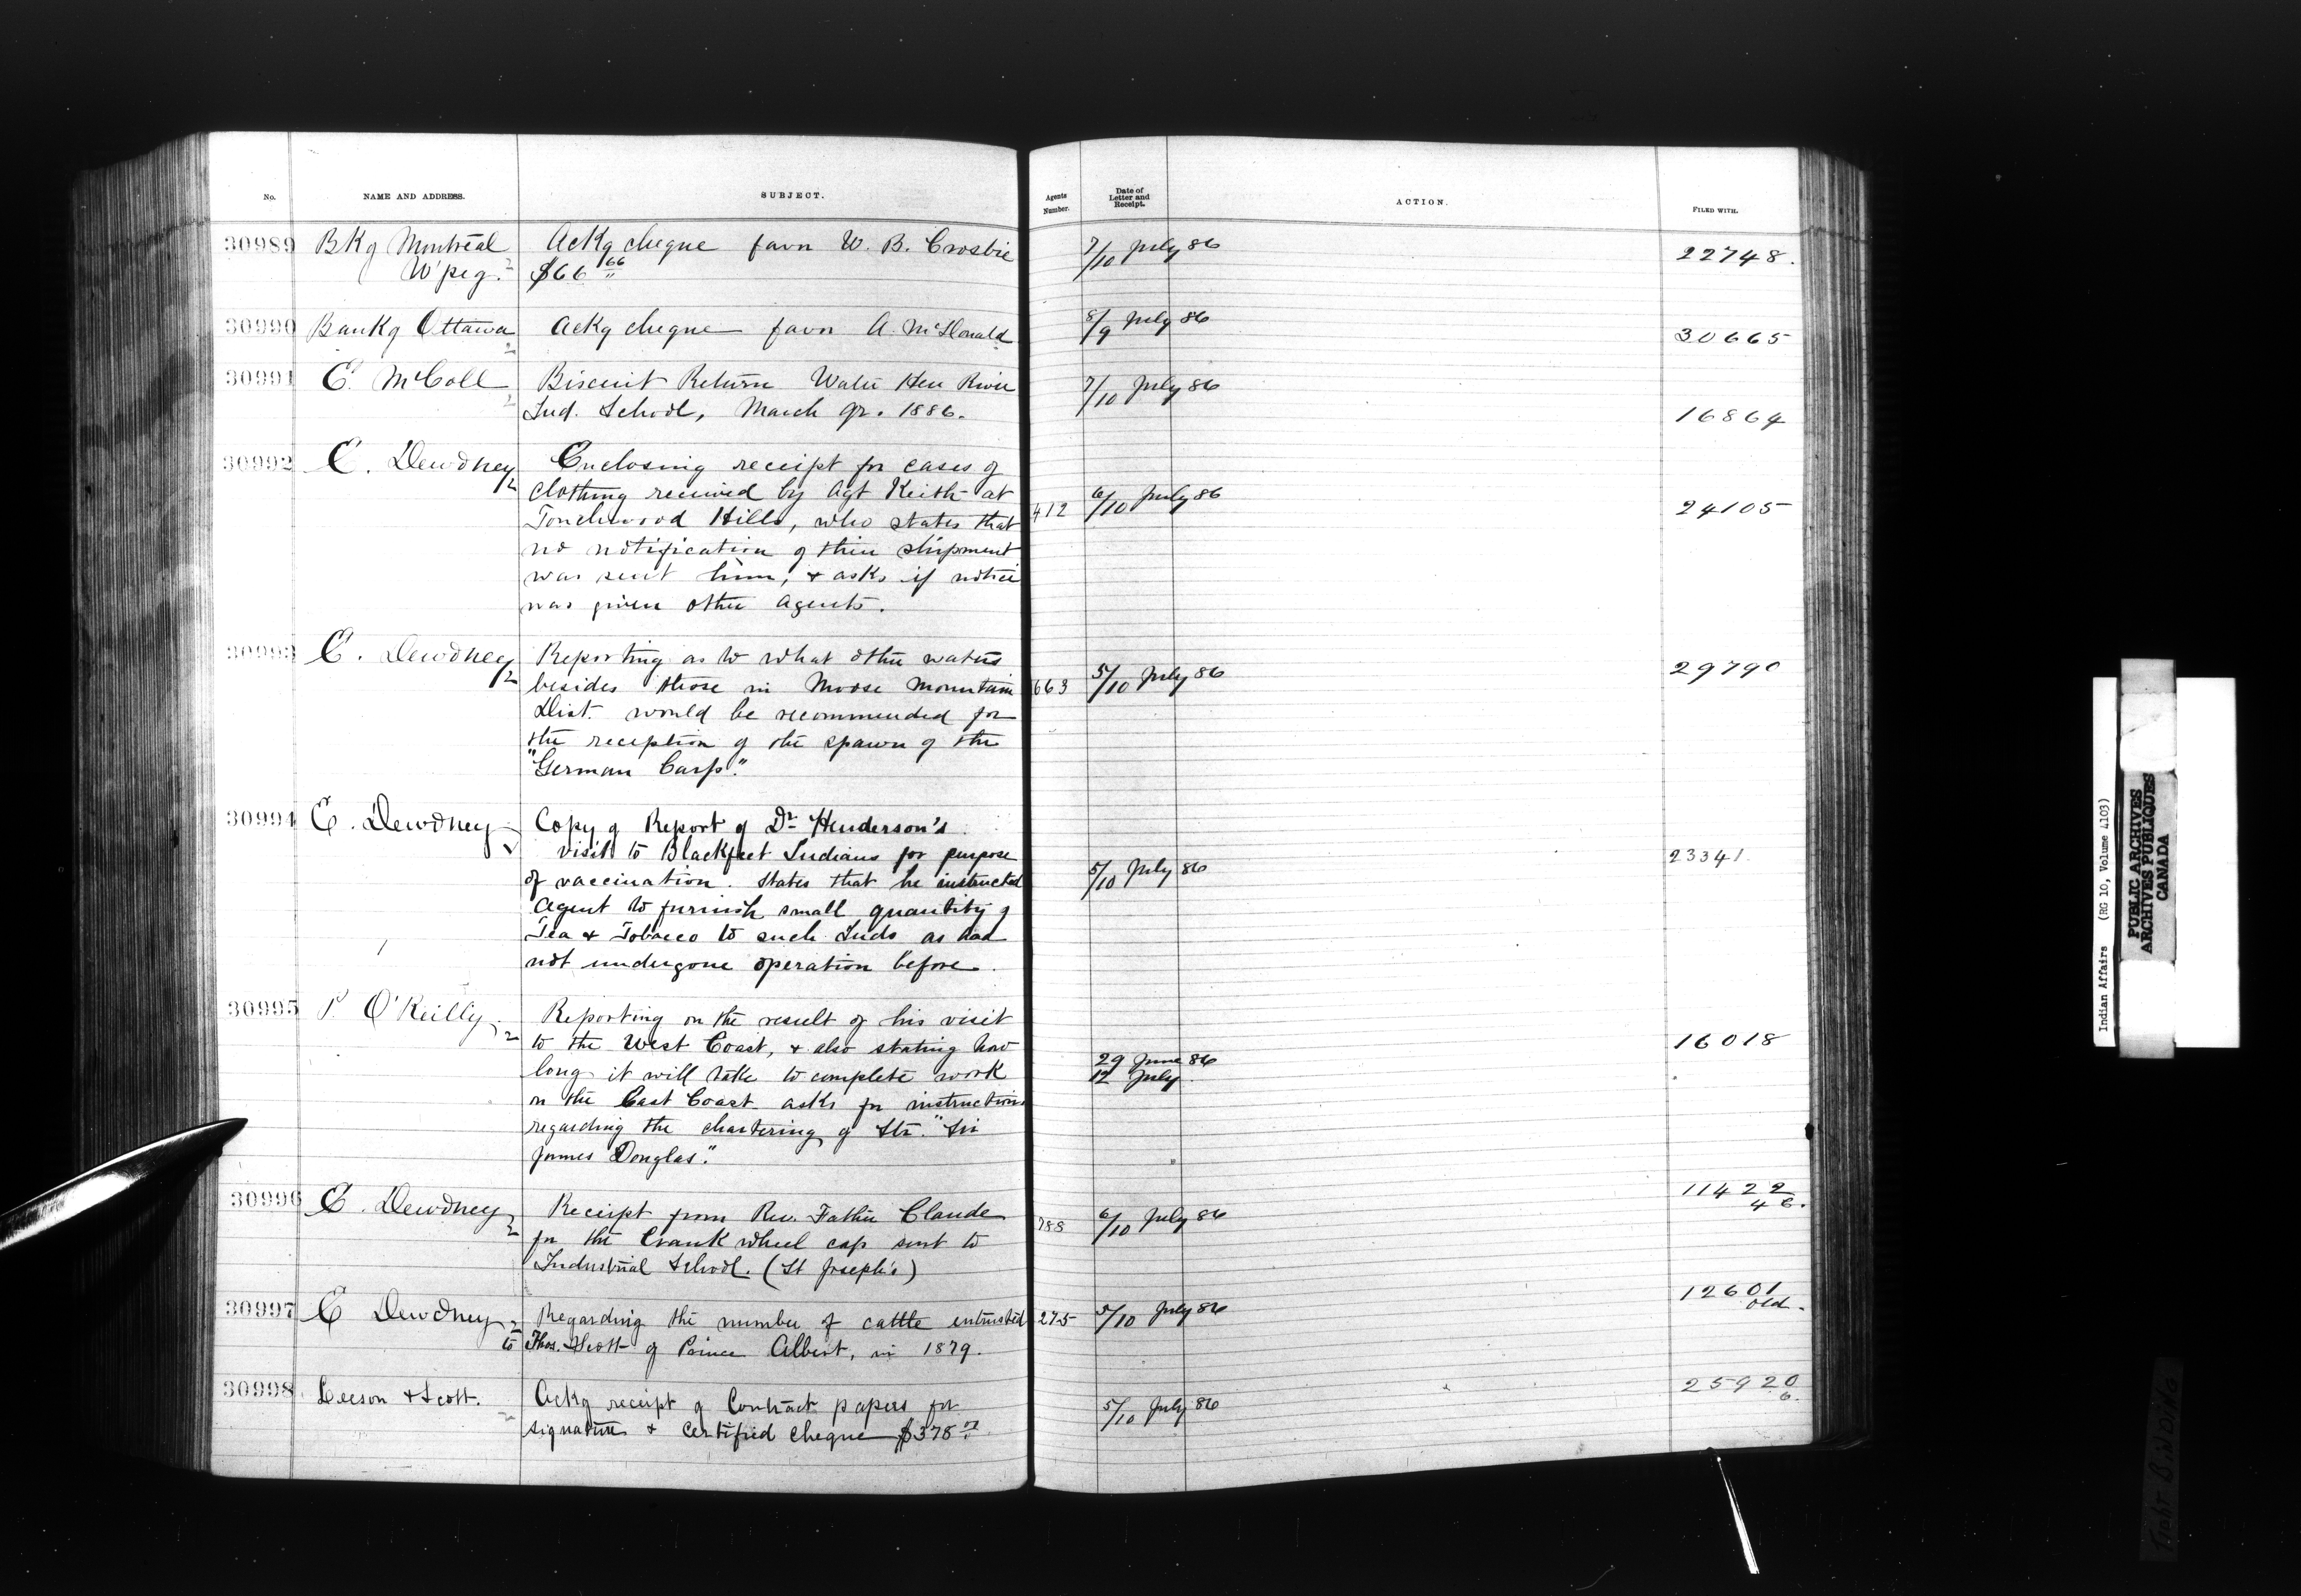 No. NAME AND ADDRESS. SUBJECT. Agents Number. Date of Letter and Receipt. ACTION. FILED WITH.
30989 Bk of Montreal Ackg cheque favr W. B. Crosbie 7/10 July 86 22748.
W'peg. $66 66
30990 Bank of Ottawa Ackg cheque favr A. McDonald 8/9 July 86 30665
30991 E. McColl Biscuit Return Water Hen River 7/10 July 86
Ind. School, March qr. 1886. 16864
30992 E. Dewdney Enclosing receipt for cases of
clothing received by Agt Keith at 6/10 July 86
Touchwood Hills, who states that 412 24105
no notification of their shipment
was sent him, & asks if notice
was given other agents.
30993 E. Dewdney Reporting as to what other waters 29790
besides those in Moose Mountain 663 5/10 July 86
Dist. would be recommended for
the reception of the spawn of the
"German Carp."
30994 E. Dewdney Copy of Report of Dr Henderson's
visit to Blackfeet Indians for purpose 23341.
of vaccination. States that he instructed 5/10 July 86
Agent to furnish small quantity of
Tea & Tobacco to such Inds as had
not undergone operation before.
30995 P O'Reilly Reporting on the result of his visit
to the West Coast, & also stating how 16018
long it will take to complete work 29 June 86
on the East Coast asks for instructions 12 July
regarding the chartering of Str. "Sir
James Douglas."
30996 E. Dewdney Receipt from Rev. Father Claude 788 6/10 July 86 11422
46.
for the Crank wheel cap sent to
Industrial School. (St Joseph's)
30997 E Dewdney Regarding the number of cattle intrusted 275 5/10 July 86 12601
old.
to Thos. Scott of Prince Albert, in 1879.
30998 Leeson & Scott. Ackg receipt of Contract papers for 5/10 July 86 25920
6.
signature & certified cheque $375
Indian Affairs (RG 10, Volume 4103)
PUBLIC ARCHIVES
ARCHIVES PUBLIQUES
CANADA
TIGHT BINDING